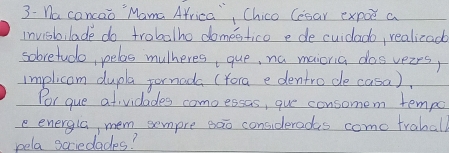 3- Na canção "Mama África", Chico César expõe a
invisibilade do trabalho doméstico e de cuidado, realizado
sobretudo, pelas mulheres, que, na maioria das vezes,
implicam dupla jornada (fora e dentro de casa).
Por que atividades como essas, que consomem tempo
e energia, mem sempre são consideradas como traball
pela sociedades?